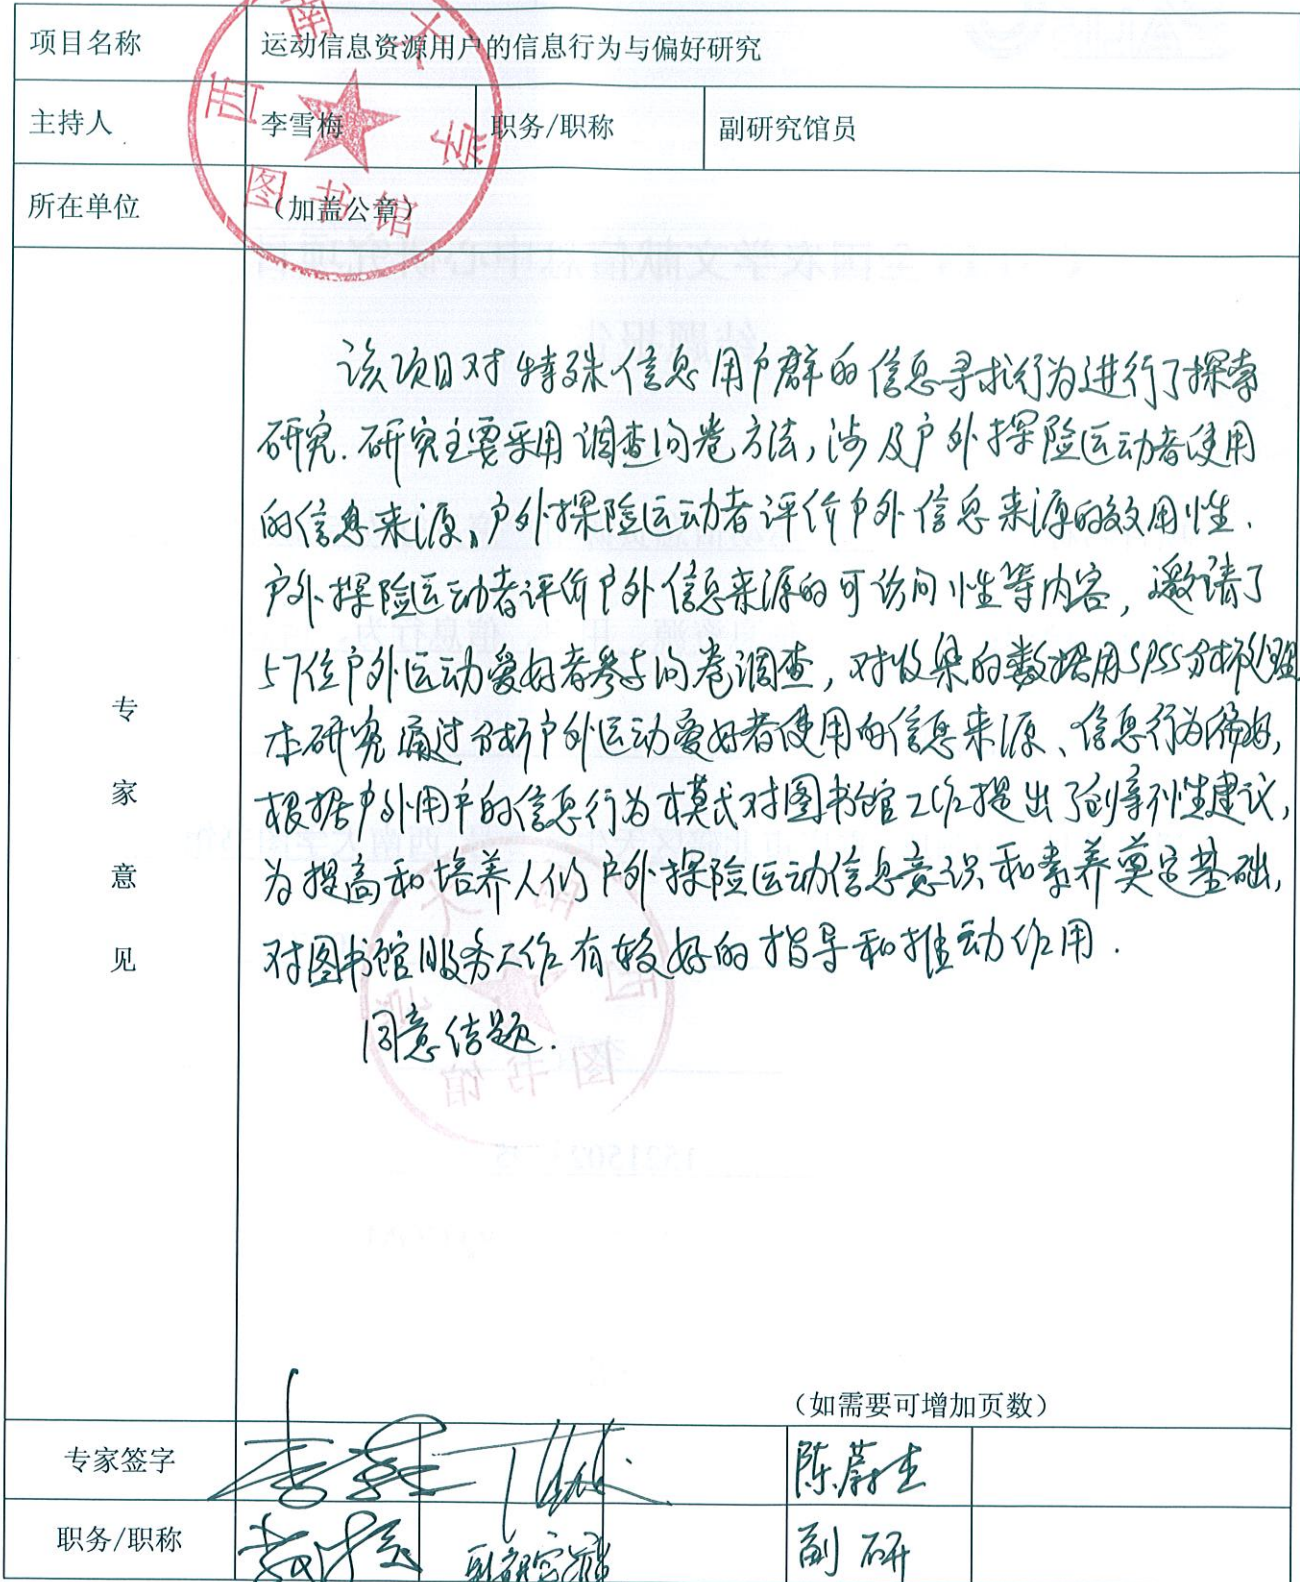 项目名称 运动信息资源用户的信息行为与偏好研究
主持人 李雪梅 职务/职称 副研究馆员
所在单位 (加盖公章)
西南大学
图书馆
专家意见
该项目对特殊信息用户群的信息寻求行为进行了探索
研究.研究主要采用调查问卷方法,涉及户外探险运动者使用
的信息来源、户外探险运动者评价户外信息来源的效用性.
户外探险运动者评价户外信息来源的可访问性等内容,邀请了
57位户外运动爱好者参与问卷调查,对收集的数据用SPSS分析处理
本研究通过分析户外运动爱好者使用的信息来源、信息行为偏好,
根据户外用户的信息行为模式对图书馆工作提出了创新性建议,
为提高和培养人们户外探险运动信息意识和素养奠定基础,
对图书馆服务工作有较好的指导和推动作用.
同意结题.
(如需要可增加页数)
专家签字 陈蔚
职务/职称 副研